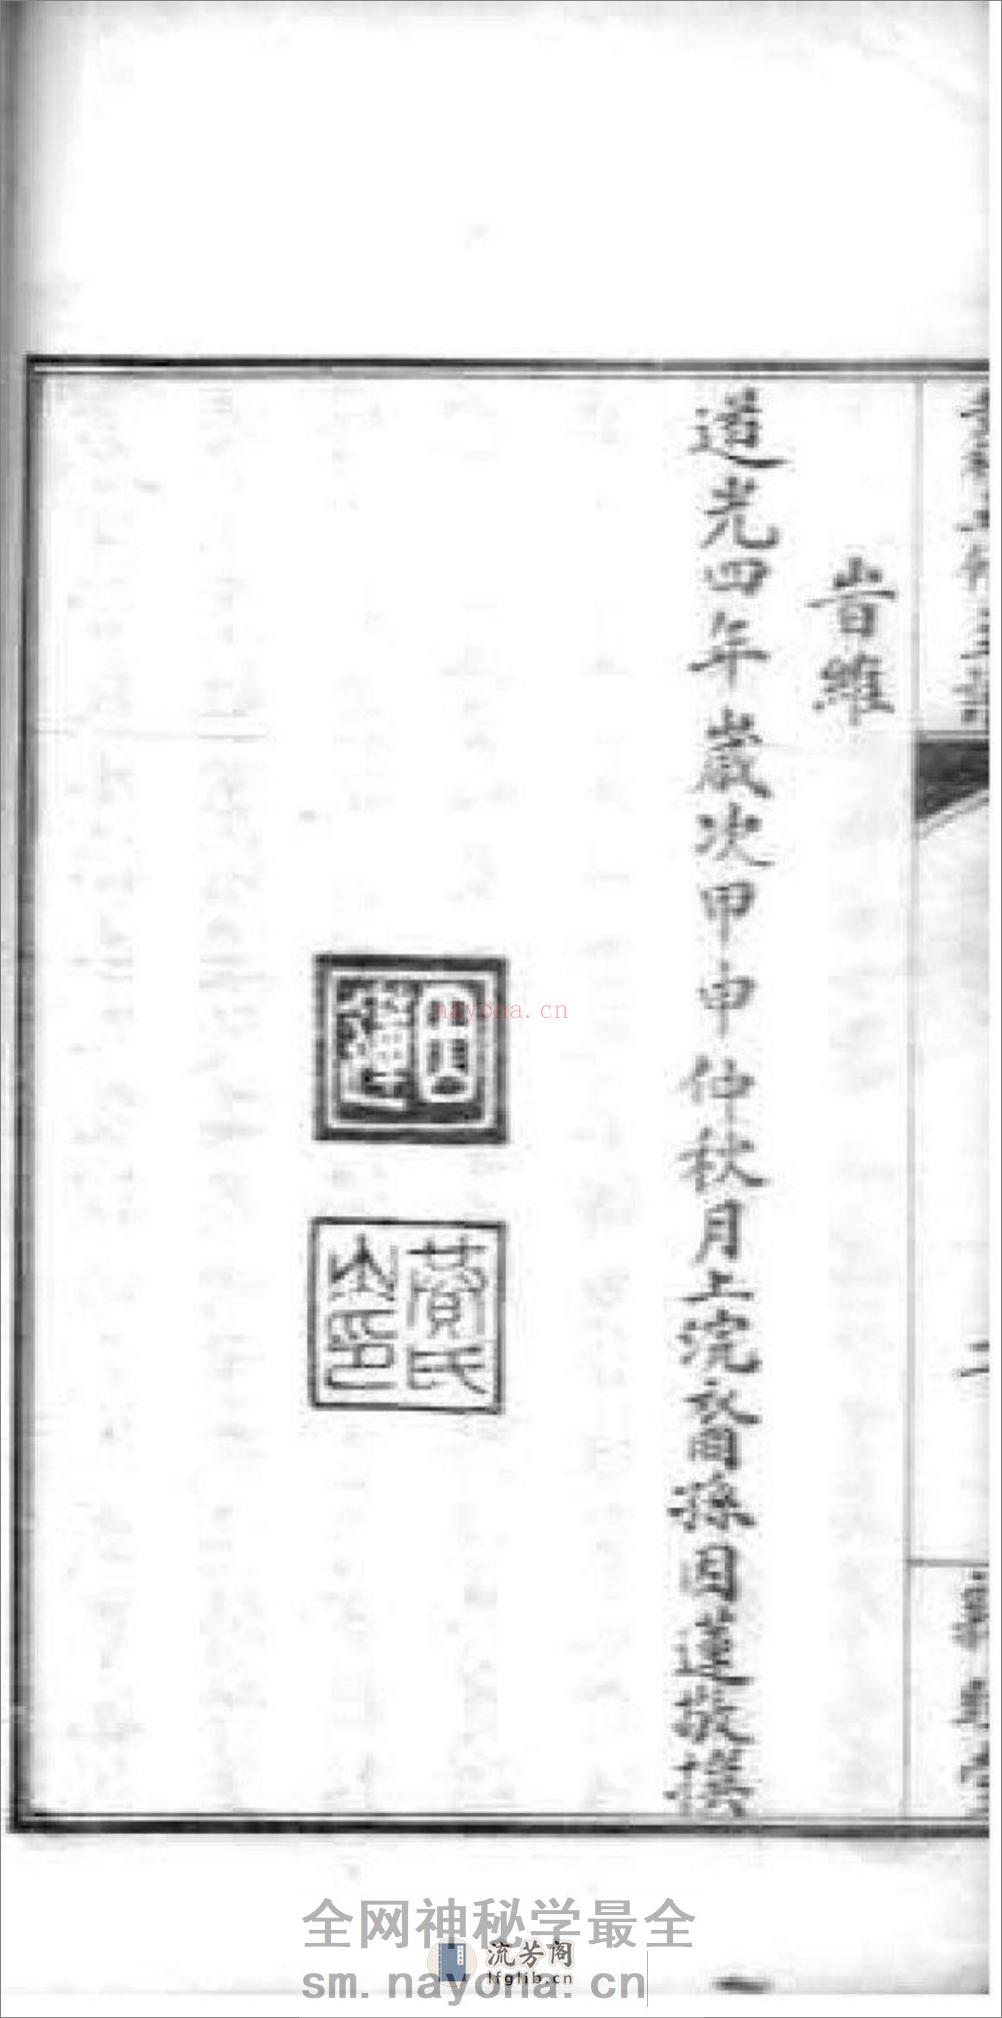 旹維
道光四年歲次甲申仲秋月上浣裔孫敬撰
氏之印
nayona.cn
全网神秘学最全
流芳阁
lfglib.cn
sm.nayona.cn